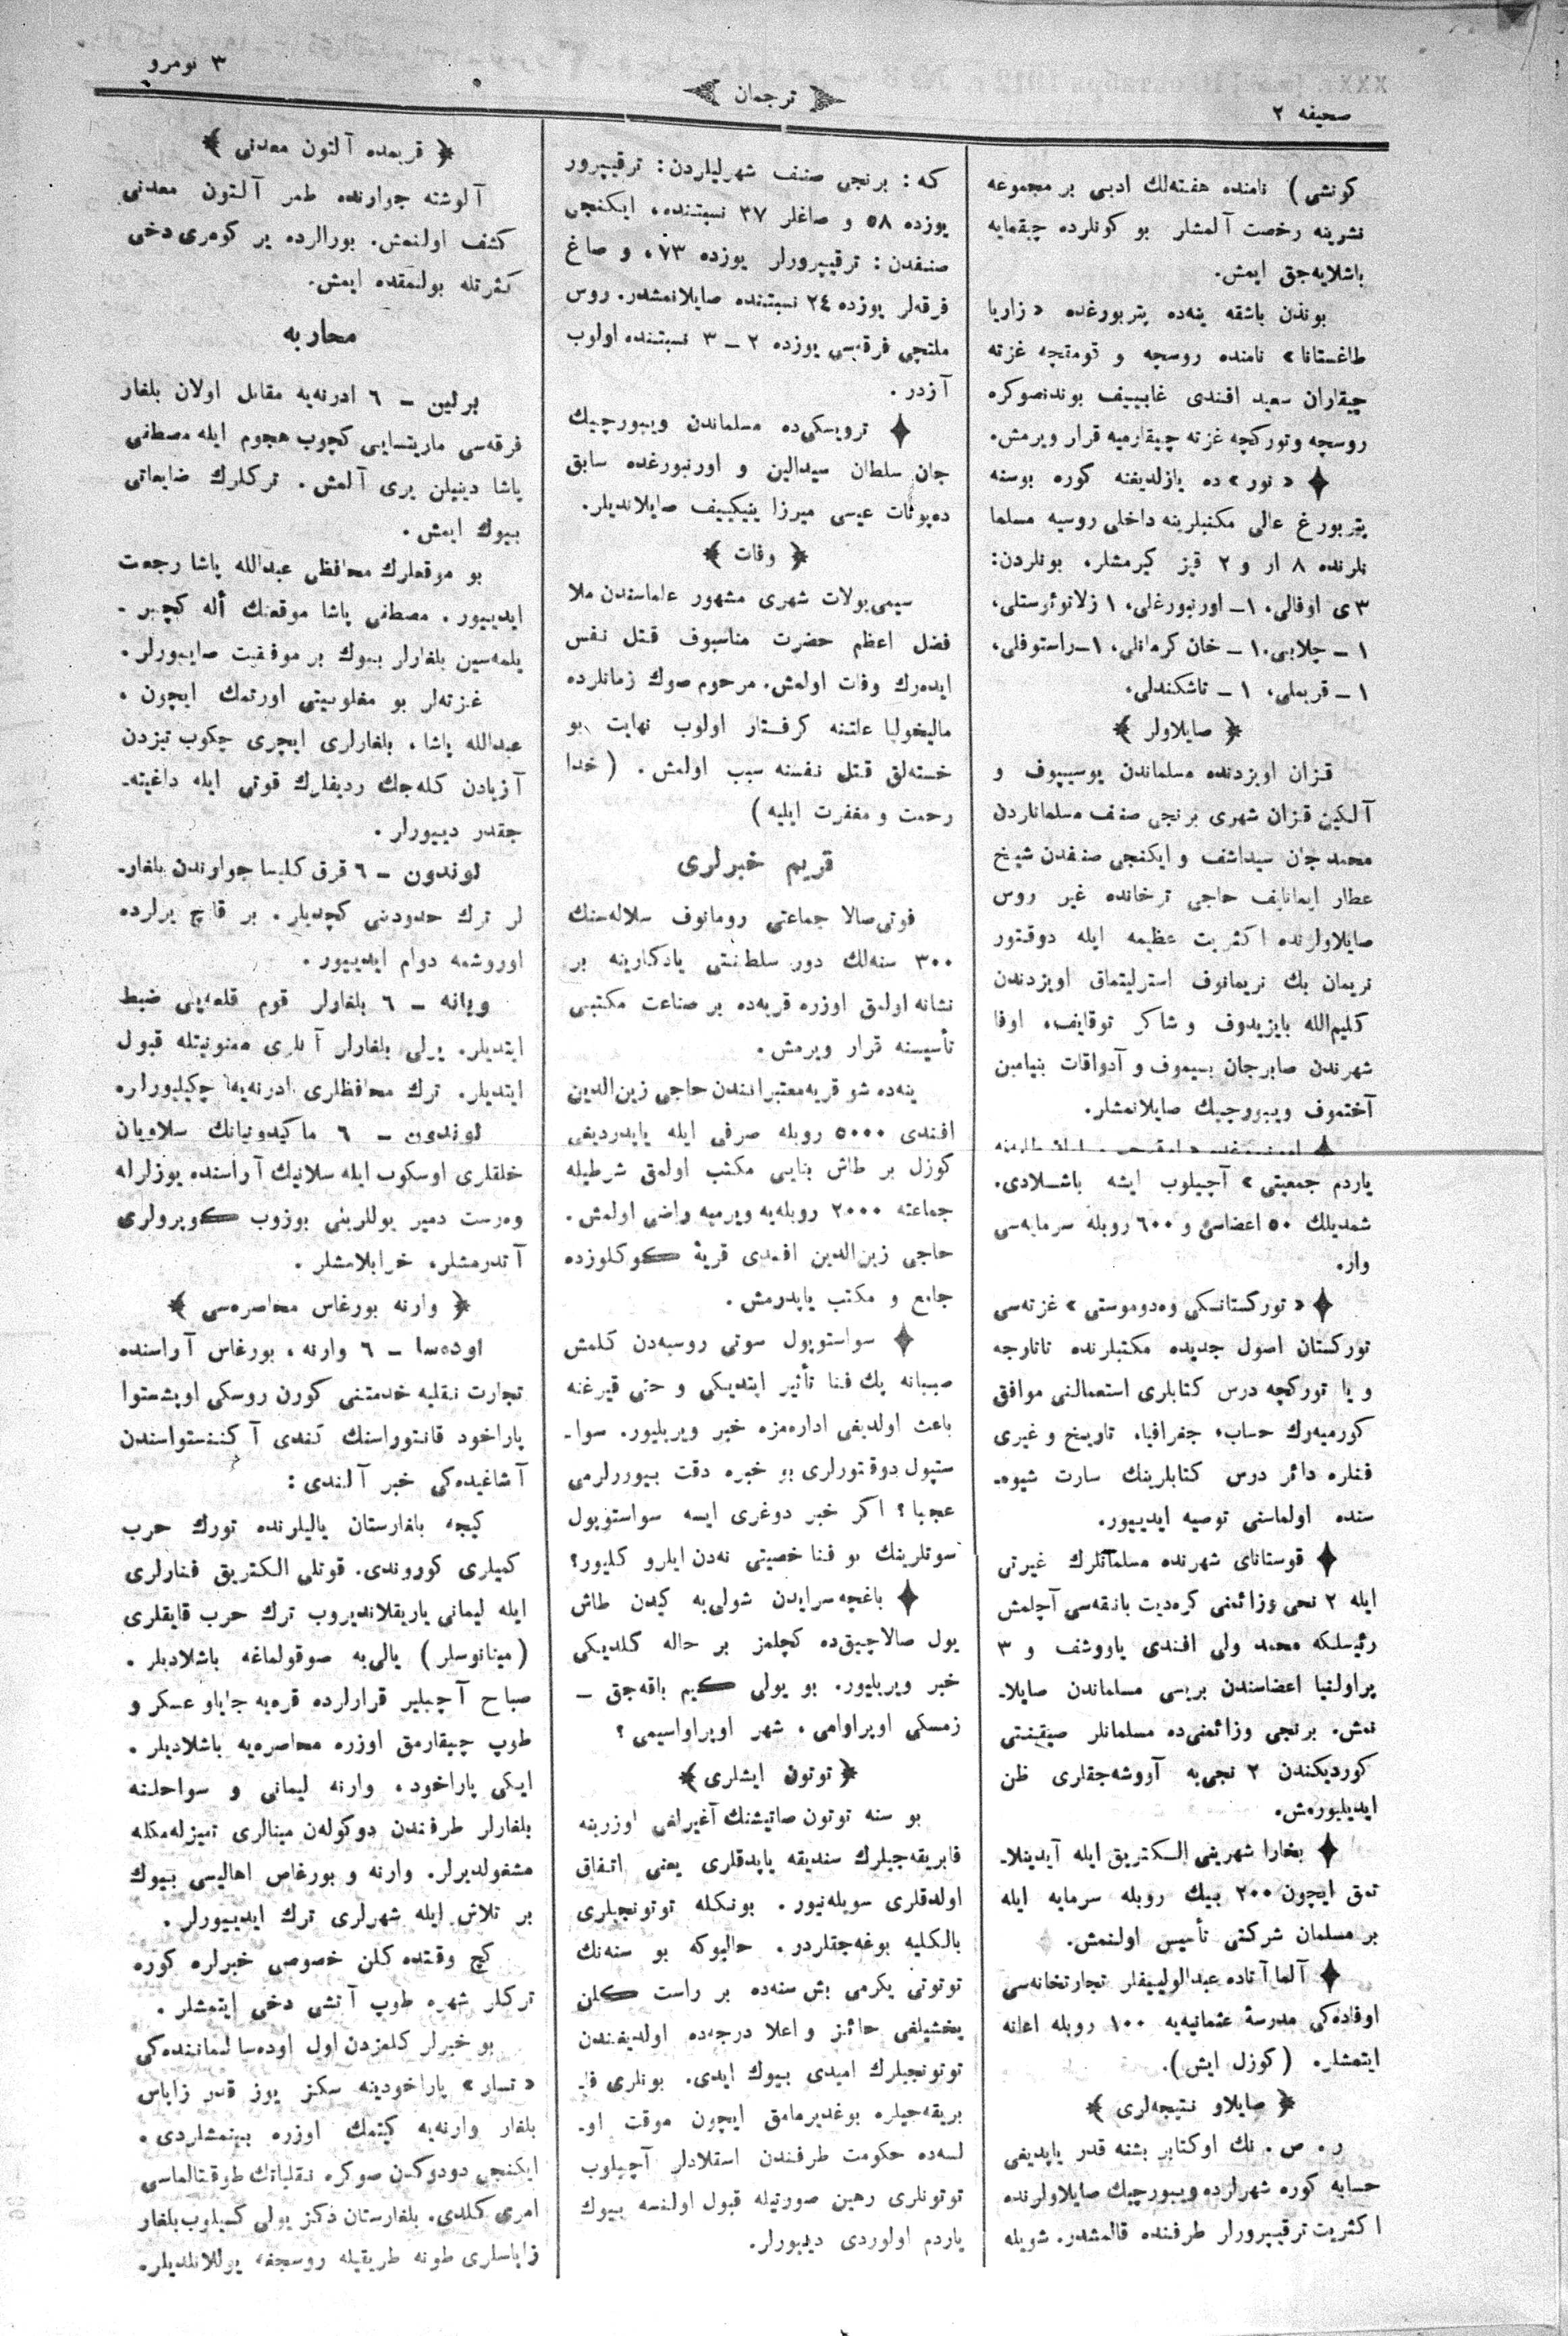 صحیفه ٢
ترجمان
٣ نومرو
كونشی) نامنده هفته‌لك ادبی بر مجموعه
نشرینه رخصت آلمشلر بو كونلرده چیقمایه
باشلایه‌جق ایمش.
بوندن باشقه ینه‌ده پتربورغده «زاریا
طاغستانا» نامنده روسچه و قومقچه غزته
چیقاران سعید افندی غابییف بوندنصوكره
روسچه وتوركچه غزته چیقارمیه قرار ویرمش.
«نور»ده یازلدیغنه كوره بوسنه
پتربورغ عالی مكتبلرینه داخلی روسیه مسلما
نلرنده ٨ ار و ٢ قیز كیرمشلر. بونلردن:
٣ی اوفالی، ١ـ اورنبورغلی، ١ زلاتوئوستلی،
١ ـ چلابی، ١ ـ خان كرمانلی، ١ـ راستوفلی،
١ ـ قریملی، ١ ـ تاشكندلی.
﴿ صایلاولر ﴾
قزان اویزدنده مسلماندن یوسیپوف و
آلكین قزان شهری برنجی صنف مسلمانلردن
محمد جان سیداشف و ایكنجی صنفدن شیخ
عطار ایمانایف حاجی ترخانده غیر روس
صایلاولرنده اكثریت عظیمه ایله دوقتور
نریمان بك نریمانوف استرلیتماق اویزدندن
كلیم‌الله بایزیدوف و شاكر توقایف، اوفا
شهرندن صابرجان بسیموف و آدواقات بنیامین
آختموف ویبورچیك صایلانمشلر.
یاردم جمعیتی» آچیلوب ایشه باشلادی.
شمدیلك ٥٠ اعضاسی و ٦٠٠ روبله سرمایه‌سی
وار.
«توركستانسكی وه‌دوموستی» غزته‌سی
توركستان اصول جدیده مكتبلرنده تاتارجه
و یا توركچه درس كتابلری استعمالنی موافق
كورمیه‌رك حساب، جغرافیا، تاریخ و غیری
فنلره دائر درس كتابلرینك سارت شیوه‌ـ
سنده اولماسنی توصیه ایدییور.
قوستانای شهرنده مسلمانلرك غیرتی
ایله ٢ نجی وزائمنی كره‌دیت بانقه‌سی آچلمش
رئیسلكه محمد ولی افندی یاروشف و ٣
پراولنیا اعضاسندن بریسی مسلماندن صایلاـ
نمش. برنجی وزائمنی‌ده مسلمانلر صیقینتی
كوردیكندن ٢ نجی‌یه آووشه‌جقلری ظن
ایدیلیورمش.
بخارا شهرینی الكتریق ایله آیدینلاـ
تمق ایچون ٢٠٠ بیك روبله سرمایه ایله
بر مسلمان شركتی تأسیس اولنمش.
آلما آتاده عبدالولییفلر تجارتخانه‌سی
اوفاده‌كی مدرسۀ عثمانیه‌یه ١٠٠ روبله اعانه
ایتمشلر. (كوزل ایش).
﴿ صایلاو نتیجه‌لری ﴾
ر. ص. نك اوكتابر بشنه قدر یاپدیغی
حسابه كوره شهرلرده ویبورچیك صایلاولرنده
اكثریت ترقیپرورلر طرفنده قالمشدر. شویله
كه: برنجی صنف شهرلیلردن: ترقیپرور
یوزده ٥٨ و صاغلر ٣٧ نسبتنده، ایكنجی
صنفدن: ترقیپرورلر یوزده ٧٣، و صاغ
فرقه‌لر یوزده ٢٤ نسبتنده صایلانمشدر. روس
ملتچی فرقه‌سی یوزده ٢ ـ ٣ نسبتنده اولوب
آزدر.
ترویسكی‌ده مسلماندن ویبورچیك
جان سلطان سیدالین و اورنبورغده سابق
ده‌پوتات عیسی میرزا ینیكییف صایلاندیلر.
﴿ وفات ﴾
سیمی‌پولات شهری مشهور علماسندن ملا
فضل اعظم حضرت مناسبوف قتل نفس
ایده‌رك وفات اولمش. مرحوم صوك زمانلرده
مالیخولیا علتنه كرفتار اولوب نهایت بو
خسته‌لق قتل نفسنه سبب اولمش. (خدا
رحمت و مغفرت ایلیه)
قریم خبرلری
فوتی‌صالا جماعتی رومانوف سلاله‌سنك
٣٠٠ سنه‌لك دور سلطنتی یادكارینه بر
نشانه اولمق اوزره قریه‌ده بر صناعت مكتبی
تأسیسنه قرار ویرمش.
ینه‌ده شو قریه معتبراننندن حاجی زین‌الدین
افندی ٥٠٠٠ روبله صرفی ایله یاپدردیغی
كوزل بر طاش بنایی مكتب اولمق شرطیله
جماعته ٢٠٠٠ روبله‌یه ویرمیه راضی اولمش.
حاجی زین‌الدین افندی قریۀ كوكلوزده
جامع و مكتب یاپدرمش.
سواستوپول سوتی روسیه‌دن كلمش
صبیانه پك فنا تأثیر ایتدیكی و حتی قیرغنه
باعث اولدیغی اداره‌مزه خبر ویریلیور. سواـ
ستپول دوقتورلری بو خبره دقت بیوررلرمی
عجبا؟ اكر خبر دوغری ایسه سواستوپول
سوتلرینك بو فنا خصیتی نه‌دن ایلرو كلیور؟
باغچه‌سرایدن شولی‌یه كیدن طاش
یول صالاچیق‌ده كچلمز بر حاله كلدیكی
خبر ویریلیور. بو یولی كیم باقه‌جق ـ
زمسكی اوپراوامی، شهر اوپراواسیمی؟
﴿ توتون ایشلری ﴾
بو سنه توتون صاتیشنك آغیرلغی اوزرینه
فابریقه‌جیلرك سندیقه یاپدقلری یعنی اتفاق
اولدقلری سویله‌نیور. بونكله توتونجیلری
بالكلیه بوغه‌جقلردر. حالبوكه بو سنه‌نك
توتونی یكرمی بش سنه‌ده بر راست كلن
یخشیلغی حائز و اعلا درجه‌ده اولدیغندن
توتونجیلرك امیدی بیوك ایدی. بونلری فاـ
بریقه‌جیلره بوغدیرمامق ایچون موقت اوـ
لسه‌ده حكومت طرفندن اسقلادلر آچیلوب
توتونلری رهین صورتیله قبول اولنسه بیوك
یاردم اولوردی دییورلر.
﴿ قریمده آلتون معدنی ﴾
آلوشته جوارنده طمر آلتون معدنی
كشف اولنمش. بورالرده یر كومری دخی
كثرتله بولنمقده ایمش.
محاربه
برلین ـ ٦ ادرنه‌یه مقابل اولان بلغار
فرقه‌سی ماریتسایی كچوب هجوم ایله مصطفی
پاشا دینیلن یری آلمش. تركلرك ضایعاتی
بیوك ایمش.
بو موقعلرك محافظی عبدالله پاشا رجعت
ایدییور. مصطفی پاشا موقعنك أله كچیرـ
یلمه‌سین بلغارلر بیوك بر موفقیت صاییورلر.
غزته‌لر بو مغلوبیتی اورتمك ایچون،
عبدالله پاشا، بلغارلری ایچری چكوب تیزدن
آزیادن كله‌جك ردیفلرك قوتی ایله داغیته‌ـ
جقدر دییورلر.
لوندون ـ ٦ قرق كلیسا جوارندن بلغارـ
لر ترك حدودینی كچدیلر. بر قاچ یرلرده
اوروشمه دوام ایدییور.
ویانه ـ ٦ بلغارلر قوم قلعه‌یی ضبط
ایتدیلر. یرلی بلغارلر آنلری ممنونیتله قبول
ایتدیلر. ترك محافظلری ادرنه‌یه چكیلیورلر.
لوندون ـ ٦ ماكیدونیانك سلاویان
خلقلری اوسكوب ایله سلانیك آراسنده یوزلرله
وه‌رست دمیر یوللرینی بوزوب كوپرولری
آتدرمشلر، خرابلامشلر.
﴿ وارنه بورغاس محاصره‌سی ﴾
اوده‌سا ـ ٦ وارنه، بورغاس آراسنده
تجارت نقلیه خدمتنی كورن روسكی اوبشستوا
پاراخود قانتوراسنك كندی آكنتستواسندن
آشاغیده‌كی خبر آلندی:
كیجه بلغارستان یالیلرنده تورك حرب
كمیلری كوروندی. قوتلی الكتریق فنارلری
ایله لیمانی یاریقلاندیروب ترك حرب قایقلری
(مینانوسلر) یالی‌یه صوقولماغه باشلادیلر.
صباح آچیلیر قرارلرده قره‌یه جایاو عسكر و
طوپ چیقارمق اوزره محاصره‌یه باشلادیلر.
ایكی پاراخود، وارنه لیمانی و سواحلنه
بلغارلر طرفندن دوكولن مینالری تمیزله‌مكله
مشغولدیرلر. وارنه و بورغاس اهالیسی بیوك
بر تلاش ایله شهرلری ترك ایدییورلر.
كچ وقتده كلن خصوصی خبرلره كوره
تركلر شهره طوپ آتشی دخی ایتمشلر.
بو خبرلر كلمزدن اول اوده‌سا لیماننده‌كی
«تسار» پاراخودینه سكز یوز قدر زاپاس
بلغار وارنه‌یه كیتمك اوزره بینمشلردی.
ایكنجی دودوكدن صوكره نقلیاتك طوقتالماسی
امری كلدی. بلغارستان دكز یولی كسیلوب بلغار
زاپاسلری طونه طریقیله روسجغه یوللاندیلر.